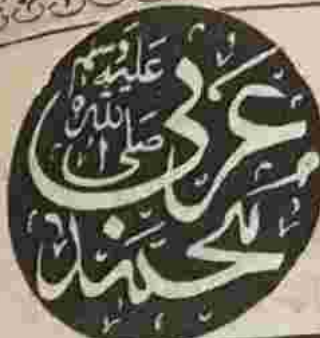 محمد
عربی
صلی اللہ
علیہ وسلم